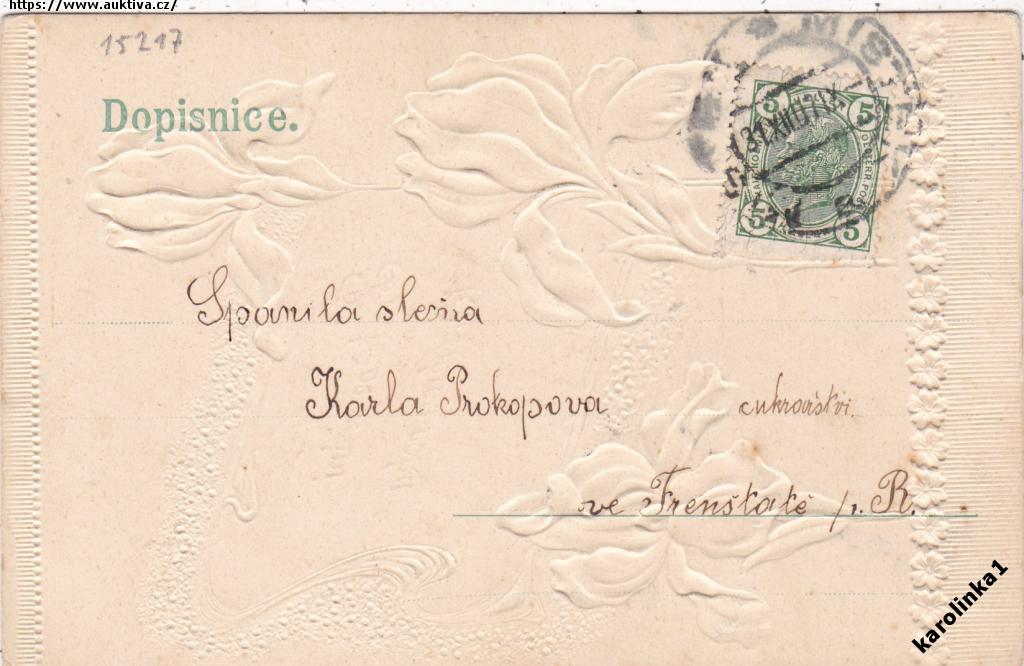 https://www.auktiva.cz/
15217
Dopisnice.
MIST
31 XII 07
5 5
5 5
Spanila slečna
Karla Prokopova cukrařstvi.
ve Frenštatě /p. R.
karolinka1